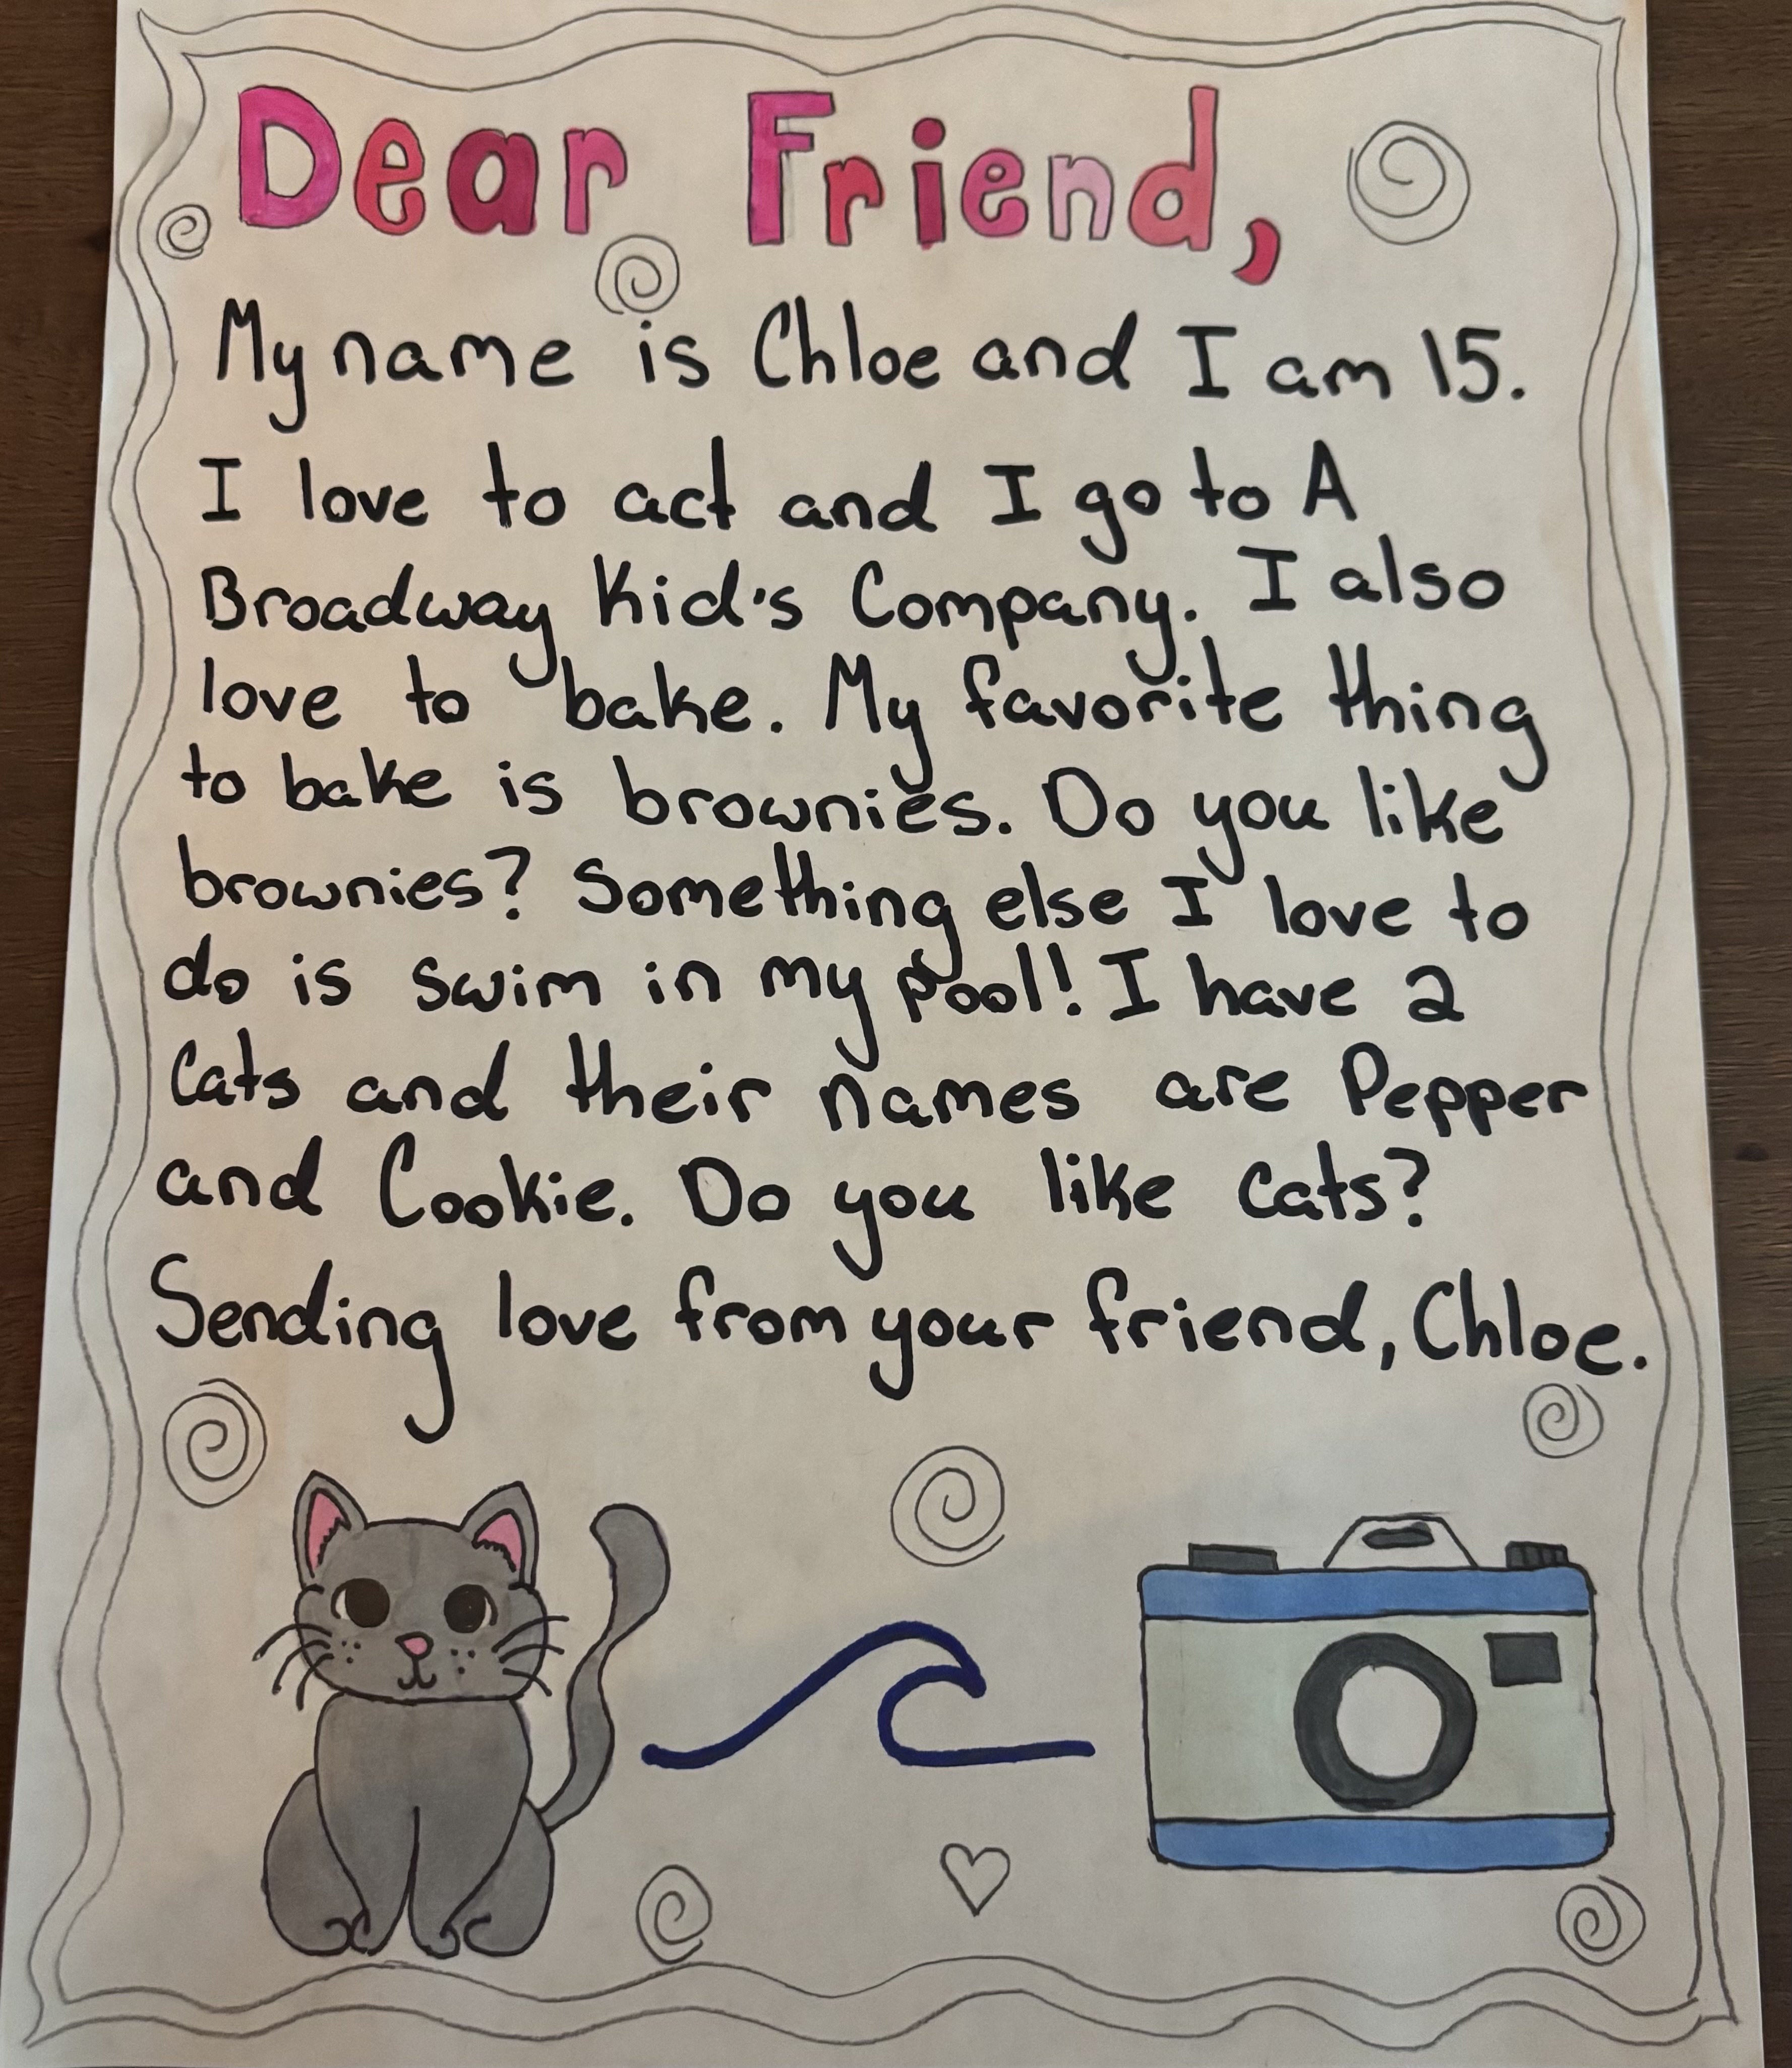 Dear Friend,
My name is Chloe and I am 15.
I love to act and I go to A
Broadway Kid's Company. I also
love to bake. My favorite thing
to bake is brownies. Do you like
brownies? Something else I love to
do is swim in my pool! I have 2
Cats and their names are Pepper
and Cookie. Do you like Cats?
Sending love from your friend, Chloe.